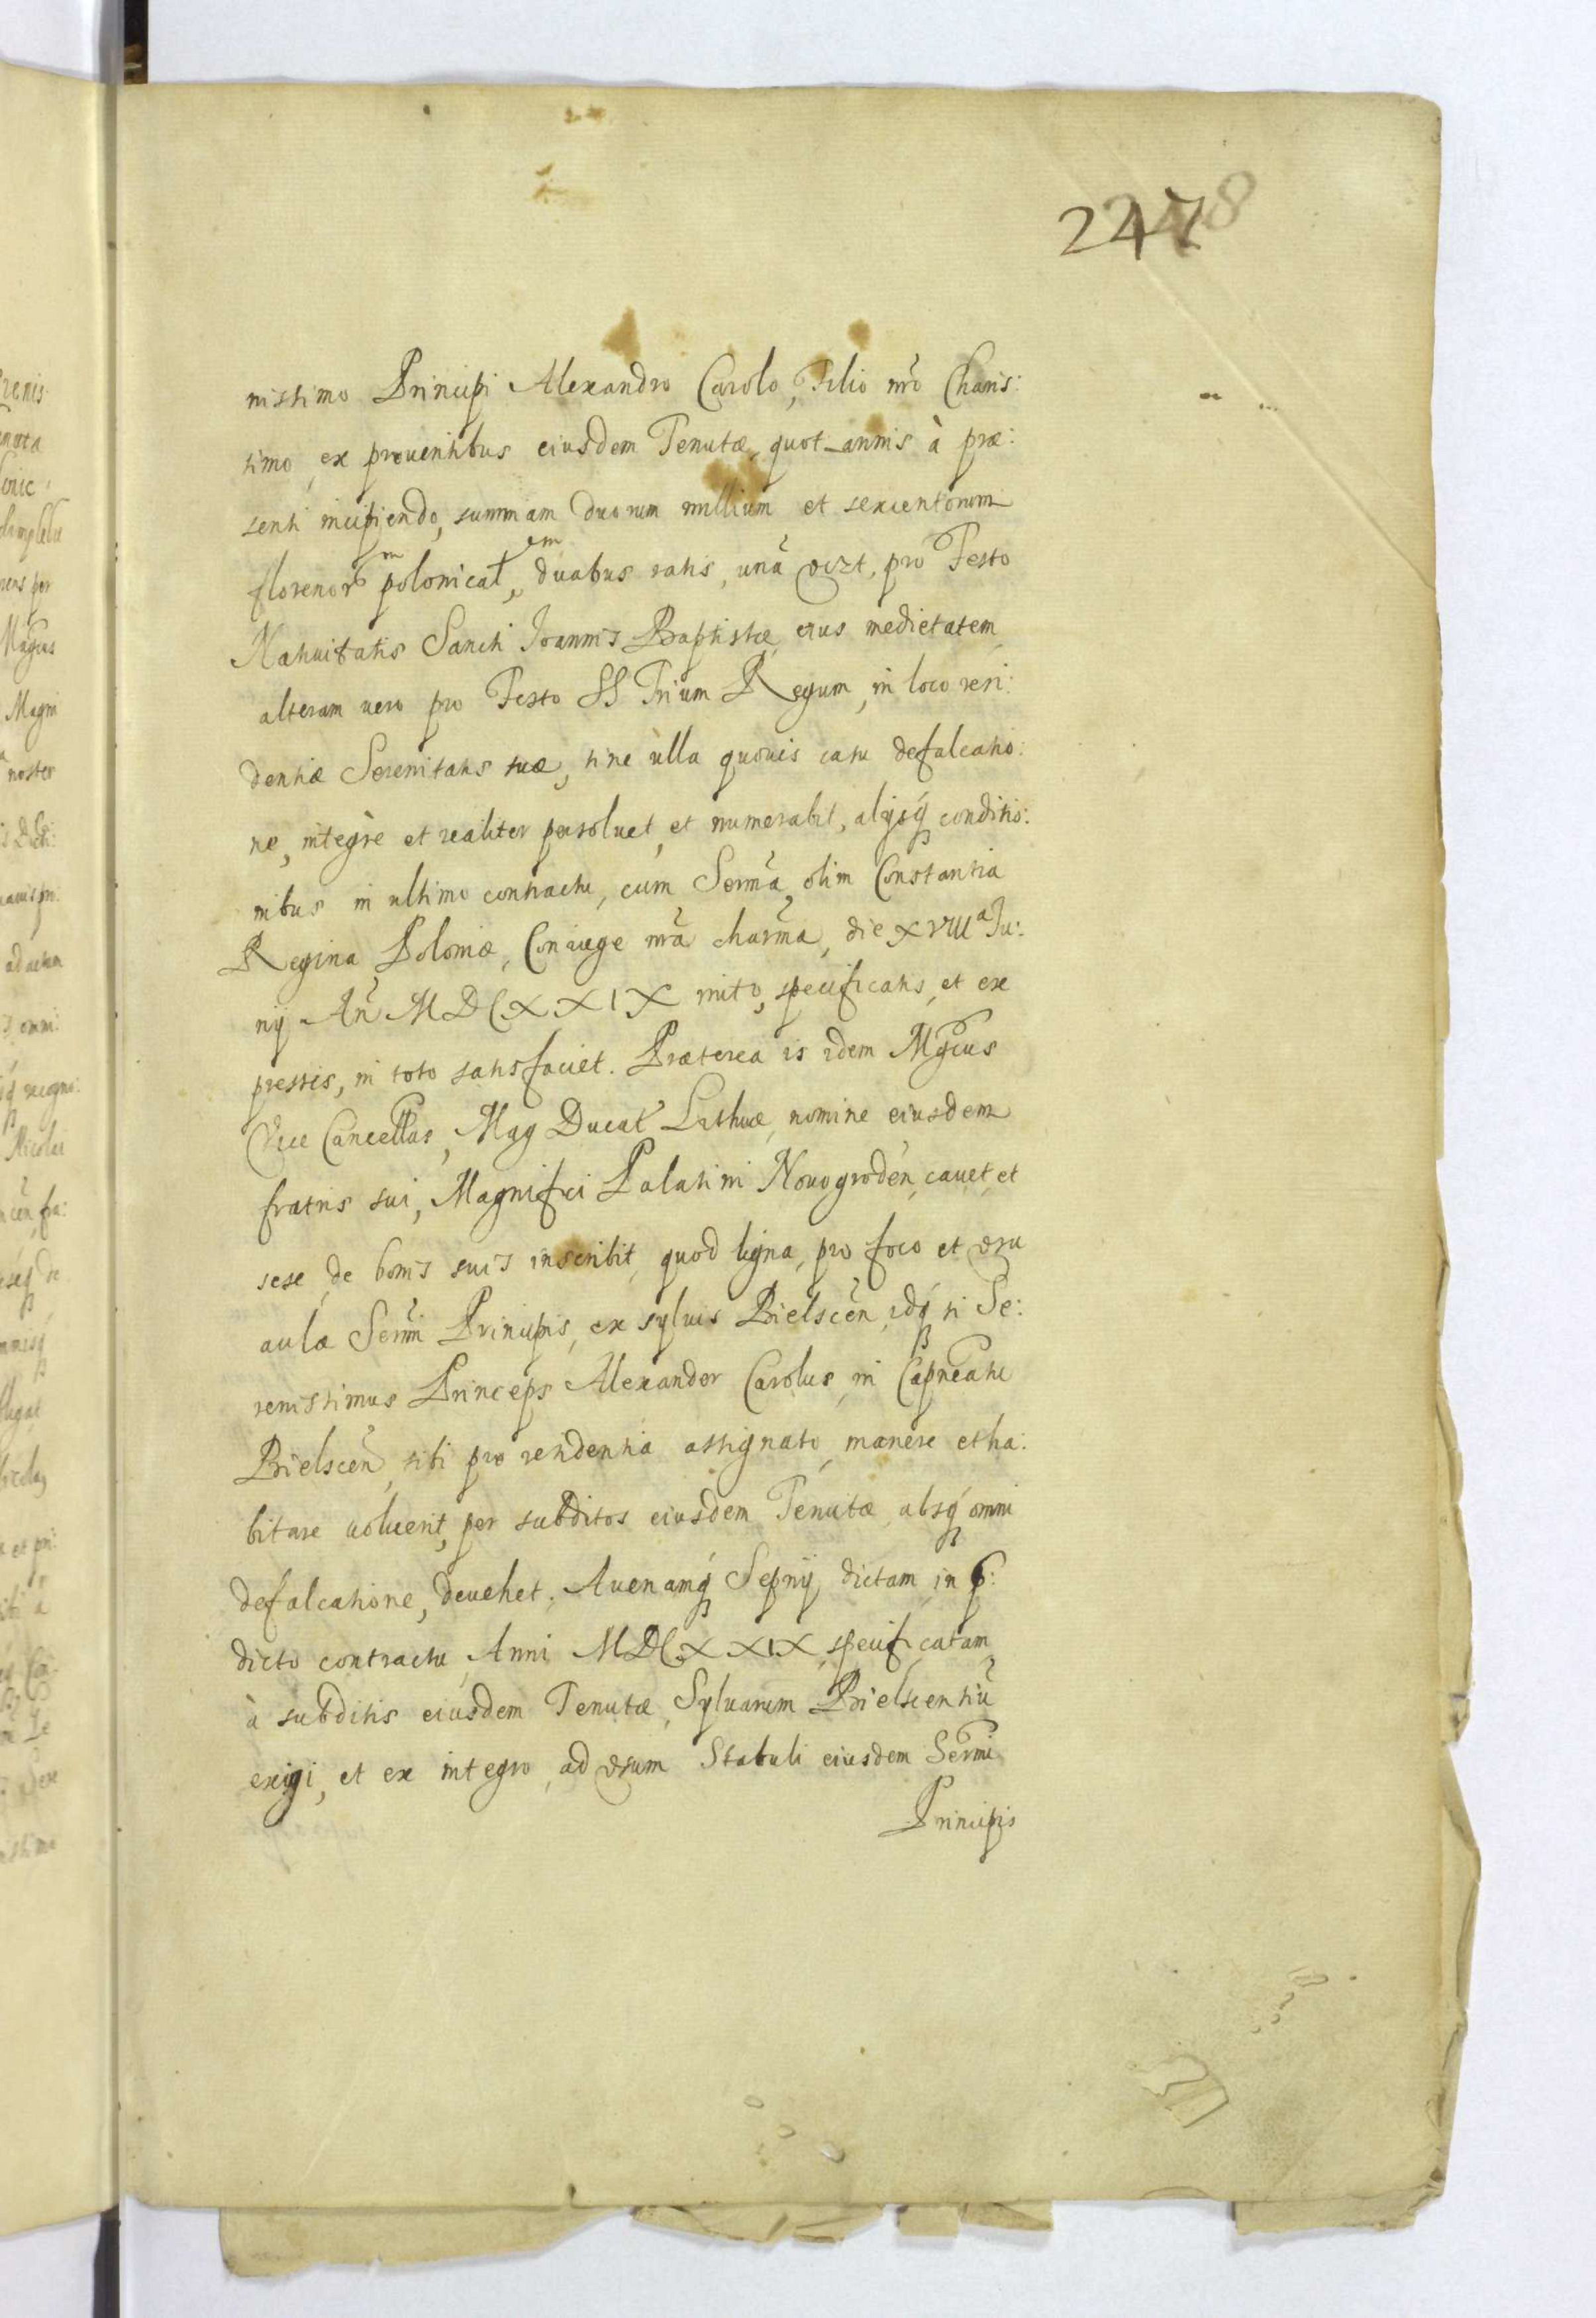 2247
nissimo Principi Alexandro Carolo, Filio nrõ Charis:
simo, ex prouentibus eiusdem Tenutæ, quot-annis à præ:
senti incipiendo, summam duorum millium et sexcentorum
florenorum polonical, duabus ratis, unã vizt, pro Festo
Natiuitatis Sancti Joannis Baptistæ, eius medietatem,
alteram uero pro Festo SS Trium Regum, in loco resi:
dentiæ Serenitatis suæ, sine ùlla quouis casu defalcatio:
ne, integrè et realiter persoluet, et numerabit, alijsq́ conditio:
nibus in ultimo contractu, cum Sermã olim Constantia
Regina Poloniæ, Coniuge nrã charmã, die XVIIIª Ju:
nij Añ MDCXXIX inito, specificatis, et ex
pressis, in toto satisfaciet. Præterea is idem Mgcus
Vice Cancellrs, Mag Ducat Lithuæ, nomine eiusdem
fratris sui, Magnifici Palatini Nouogroden, cauet, et
sese, de bonis suis inscribit, quod ligna, pro foco et vsu
aulæ Sermi Principis, ex syluis Bielscen, idq́ si Se:
renissimus Princeps Alexander Carolus, in Capneatu
Bielscen, sibi pro residentia assignato, manere et ha:
bitare uoluerit, per subditos eiusdem Tenutæ, absq́ omni
defalcatione, deuehet. Auenamq́ Sepnij dictam, in p:
dicto contractu Anni MDCXXIX, specificatam,
à subditis eiusdem Tenutæ, Syluarum Bielscensiũ
exigi, et ex integro, ad vsum Stabuli eiusdem Sermi
Principis